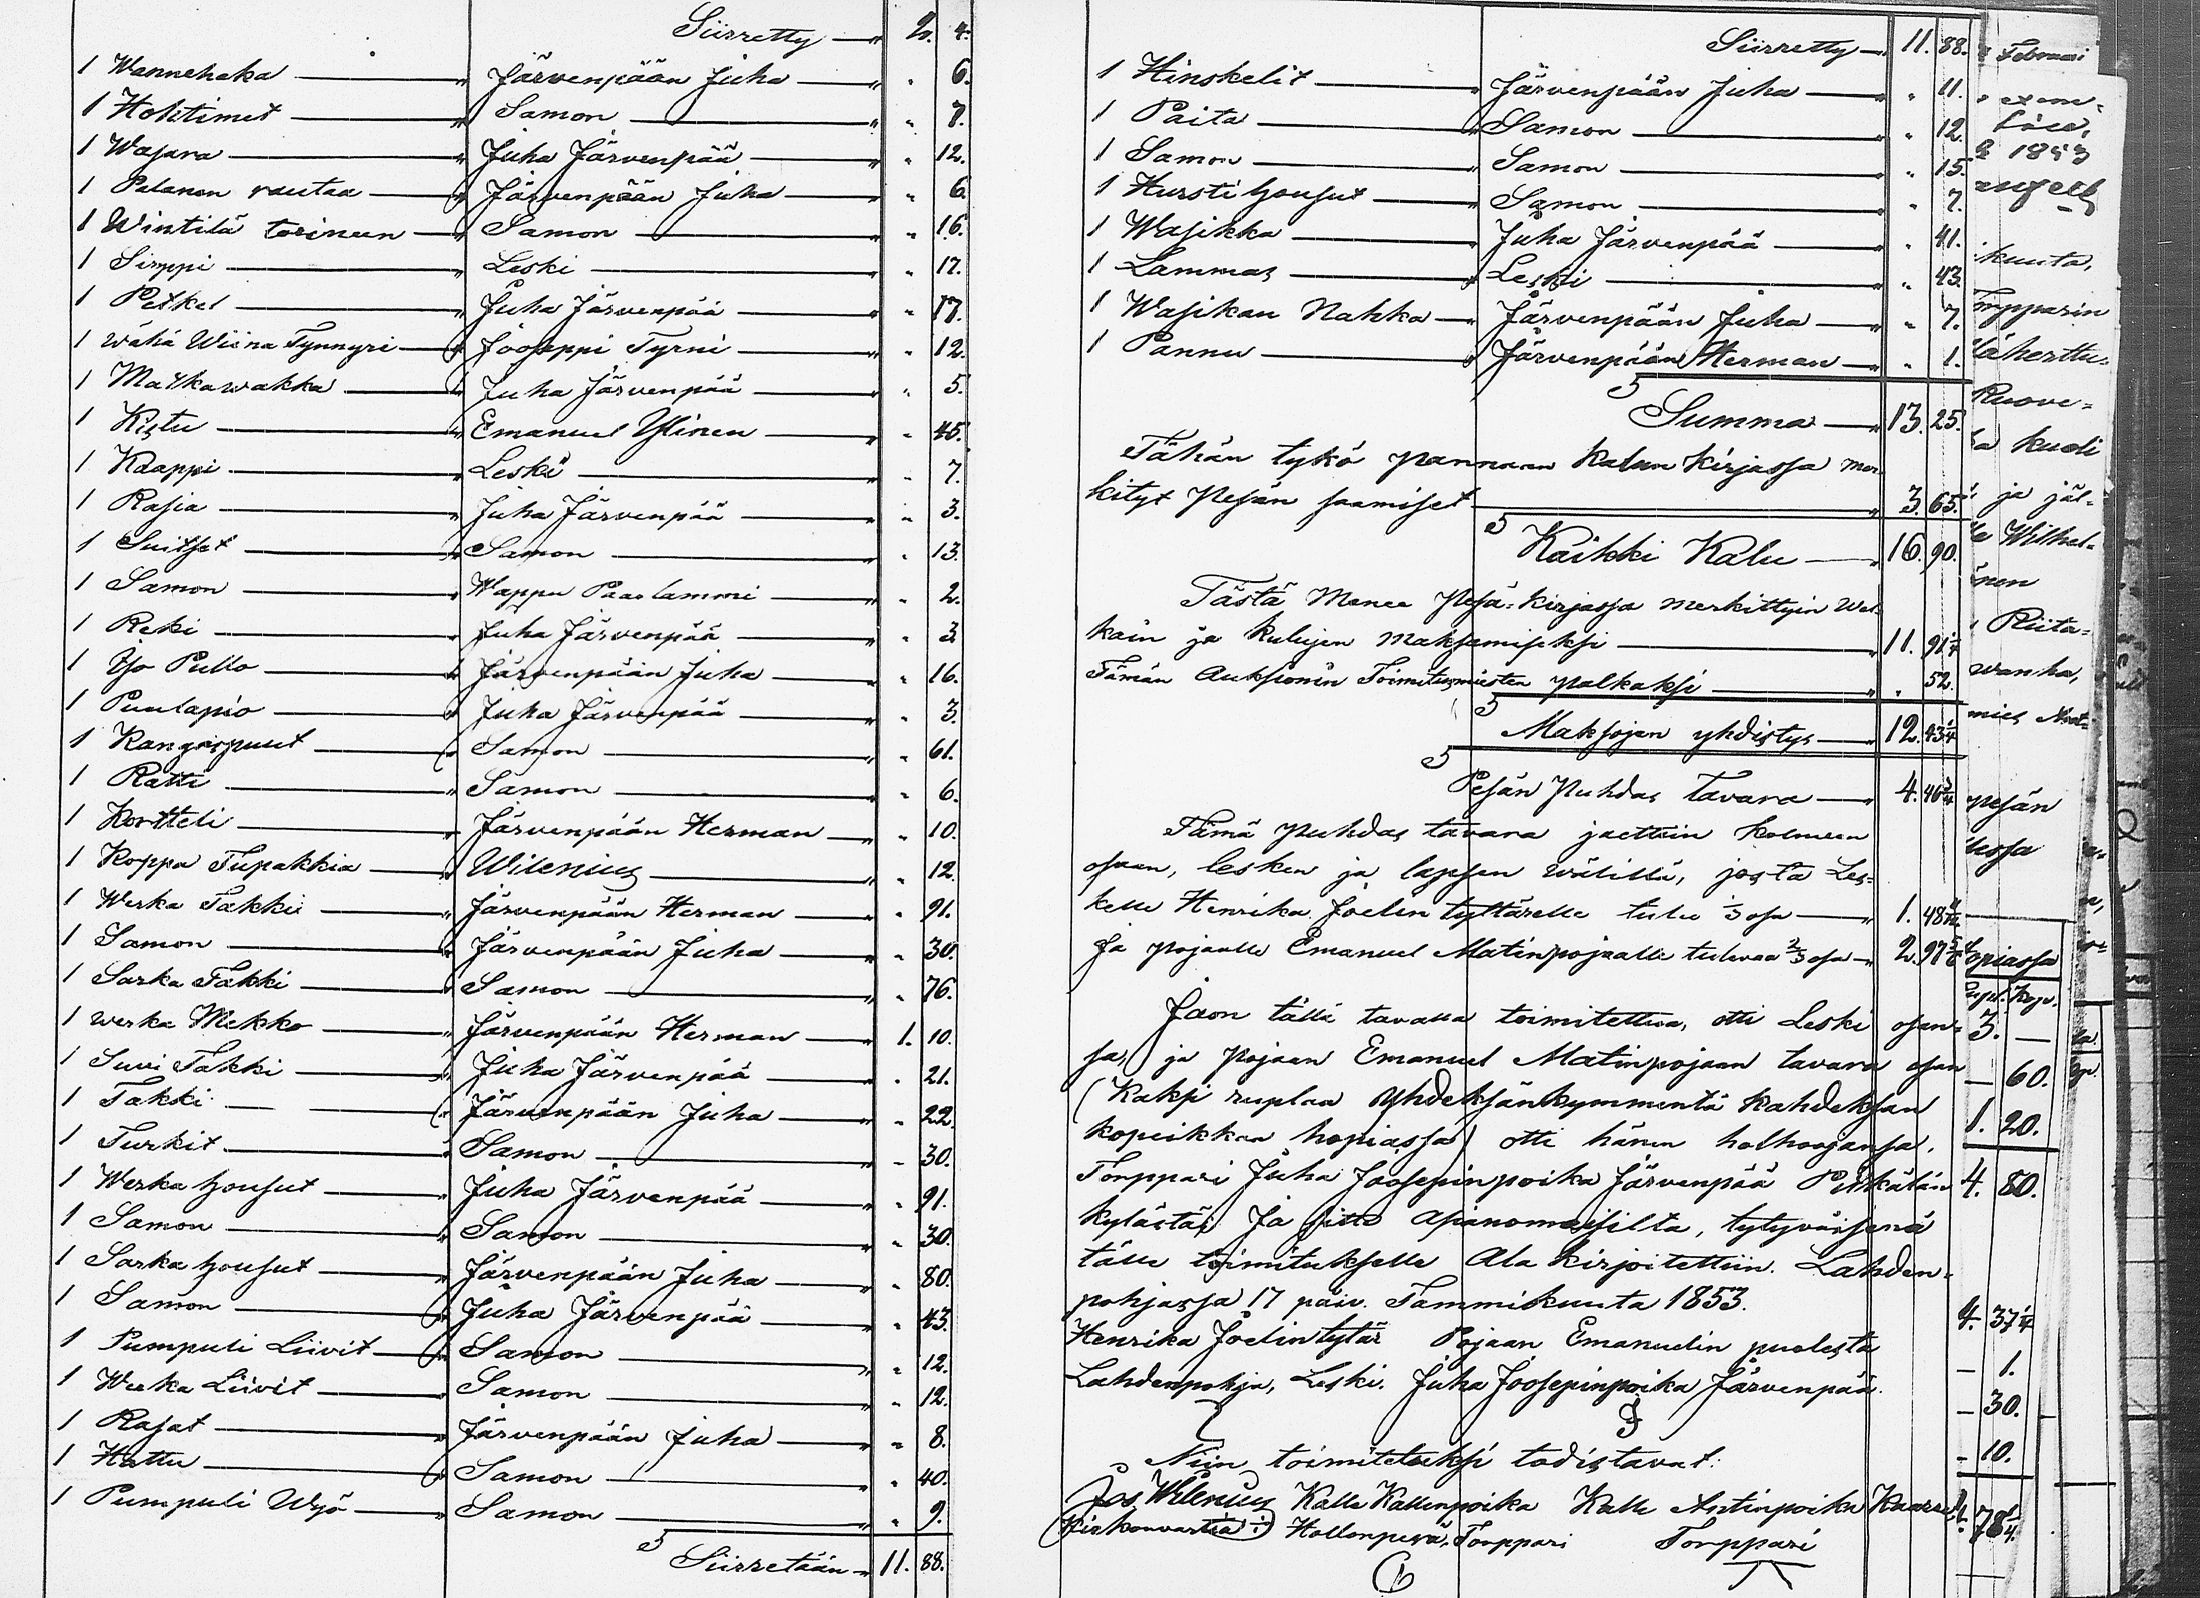 Siirretty — " 2. 4.
1 Wannehaka — " Järvenpään Juha — " " 6.
1 Hohtimet — " Samon — " " 7.
1 Wasara — " Juha Järvenpää — " " 12.
1 Palanen rautaa — " Järvenpään Juha — " " 6.
1 Wintilä terineen — " Samon — " " 16.
1 Sirppi — " Leski — " " 17.
1 Petkel — " Juha Järvenpää — " " 17.
1 wähä Wiina Tynnyri — " Jooseppi Tyrni — " " 12.
1 Matkawakka — " Juha Järvenpää — " " 5.
1 Kistu — " Emanuel Ylinen — " " 45.
1 Kaappi — " Leski — " " 7.
1 Rasia — " Juha Järvenpää — " " 3.
1 Suitset — " Samon — " " 13.
1 Samon — " Wappu Paaslammi — " " 2.
1 Reki — " Juha Järvenpää — " " 3.
1 Iso Pullo — " Järvenpään Juha — " " 16.
1 Puulapio — " Juha Järvenpää — " " 3.
1 Kangaspuut — " Samon — " " 61.
1 Ratti — " Samon — " " 6.
1 Kortteli — " Järvenpään Herman — " " 10.
1 Koppa Tupakkia — " Wilenius — " " 12.
1 Werka Takki — " Järvenpään Herman — " " 91.
1 Samon — " Järvenpään Juha — " " 30.
1 Sarka Takki — " Samon — " " 76.
1 Werka Mekko — " Järvenpään Herman — " 1. 10.
1 Suvi Takki — " Juha Järvenpää — " " 21.
1 Takki — " Järvenpään Juha — " " 22.
1 Turkit — " Samon — " " 30.
1 Werka housut — " Juha Järvenpää — " " 91.
1 Samon — " Samon — " " 30.
1 Sarka housut — " Järvenpään Juha — " " 80.
1 Samon — " Juha Järvenpää — " " 43.
1 Pumpuli Liivit — " Samon — " " 12.
1 Werka Liivit — " Samon — " " 12.
1 Rasat — " Järvenpään Juha — " " 8.
1 Hattu — " Samon — " " 40.
1 Pumpuli Wyö — " Samon — " " 9.
Siirretään — " 11. 88.
Siirretty — " 11. 88.
1 Hinskelit — " Järvenpään Juha — " " 11.
1 Paita — " Samon — " " 12.
1 Samon — " Samon — " " 15.
1 Hursti housut — " Samon — " " 7.
1 Wasikka — " Juha Järvenpää — " " 41.
1 Lammas — " Leski — " " 43.
1 Wasikan Nahka — " Järvenpään Juha — " " 7.
1 Pannu — " Järvenpään Herman — " " 1.
Summa — " 13. 25.
Tähän tykö pannaan kalun kirjassa mer-
kityt Pesän saamiset — " 3. 65.
Kaikki Kalu — " 16. 90.
Tästä Menee Pesä-kirjassa merkittyin Wel-
kain ja kulujen maksamiseksi — " 11. 91 1/4
Tämän Auksionin Toimitusmiesten palkaksi — " " 52.
Maksojan yhdistys — " 12. 43 1/4
Pesän Puhdas tavara — " 4. 46 3/4
Tämä puhdas tavara jaettiin kolmeen
osaan, lesken ja lapsen wälillä, josta Les-
kelle Henrika Joelin tyttärelle tulee 1/3 osa — " 1. 48
Ja pojalle Emanuel Matinpojaalle tulevaa 2/3 osa — " 2. 97
Jaon tällä tavalla toimitettua, otti Leski osan-
sa, ja pojaan Emanuel Matinpojaan tavara osan
(Kaksi ruplaa Yhdeksänkymmentä kahdeksan
kopeikkaa hopiassa) otti hänen holhoojansa,
Torppari Juha Joosepinpoika Järvenpää Pihkälän
kylästä. Ja sitte asianomaisilta, tytyväisenä
tälle toimitukselle Ala kirjoitettiin. Lahden-
pohjassa 17 päiv. Tammikuuta 1853.
Henrika Joelintytär Pojaan Emanuelin puolesta
Lahdenpohja, Leski. Juha Joosepinpoika Järvenpää.
Niin toimitetuksi todistavat:
Jos Wilenius Kalle Kallenpoika Kalle Antinpoika
Kirkonvartia Hollonperä, Torppari Torppari
Februari
1853
kuuta,
Ruove-
kuoli
ja jäl-
Wilhel-
nen
Riita-
wanha,
pesän
opiassa
Kop.
3. —
— 60.
1. 20.
4. 80.
4. 37 1/4
— 1.
— 30.
— 10.
78 1/4